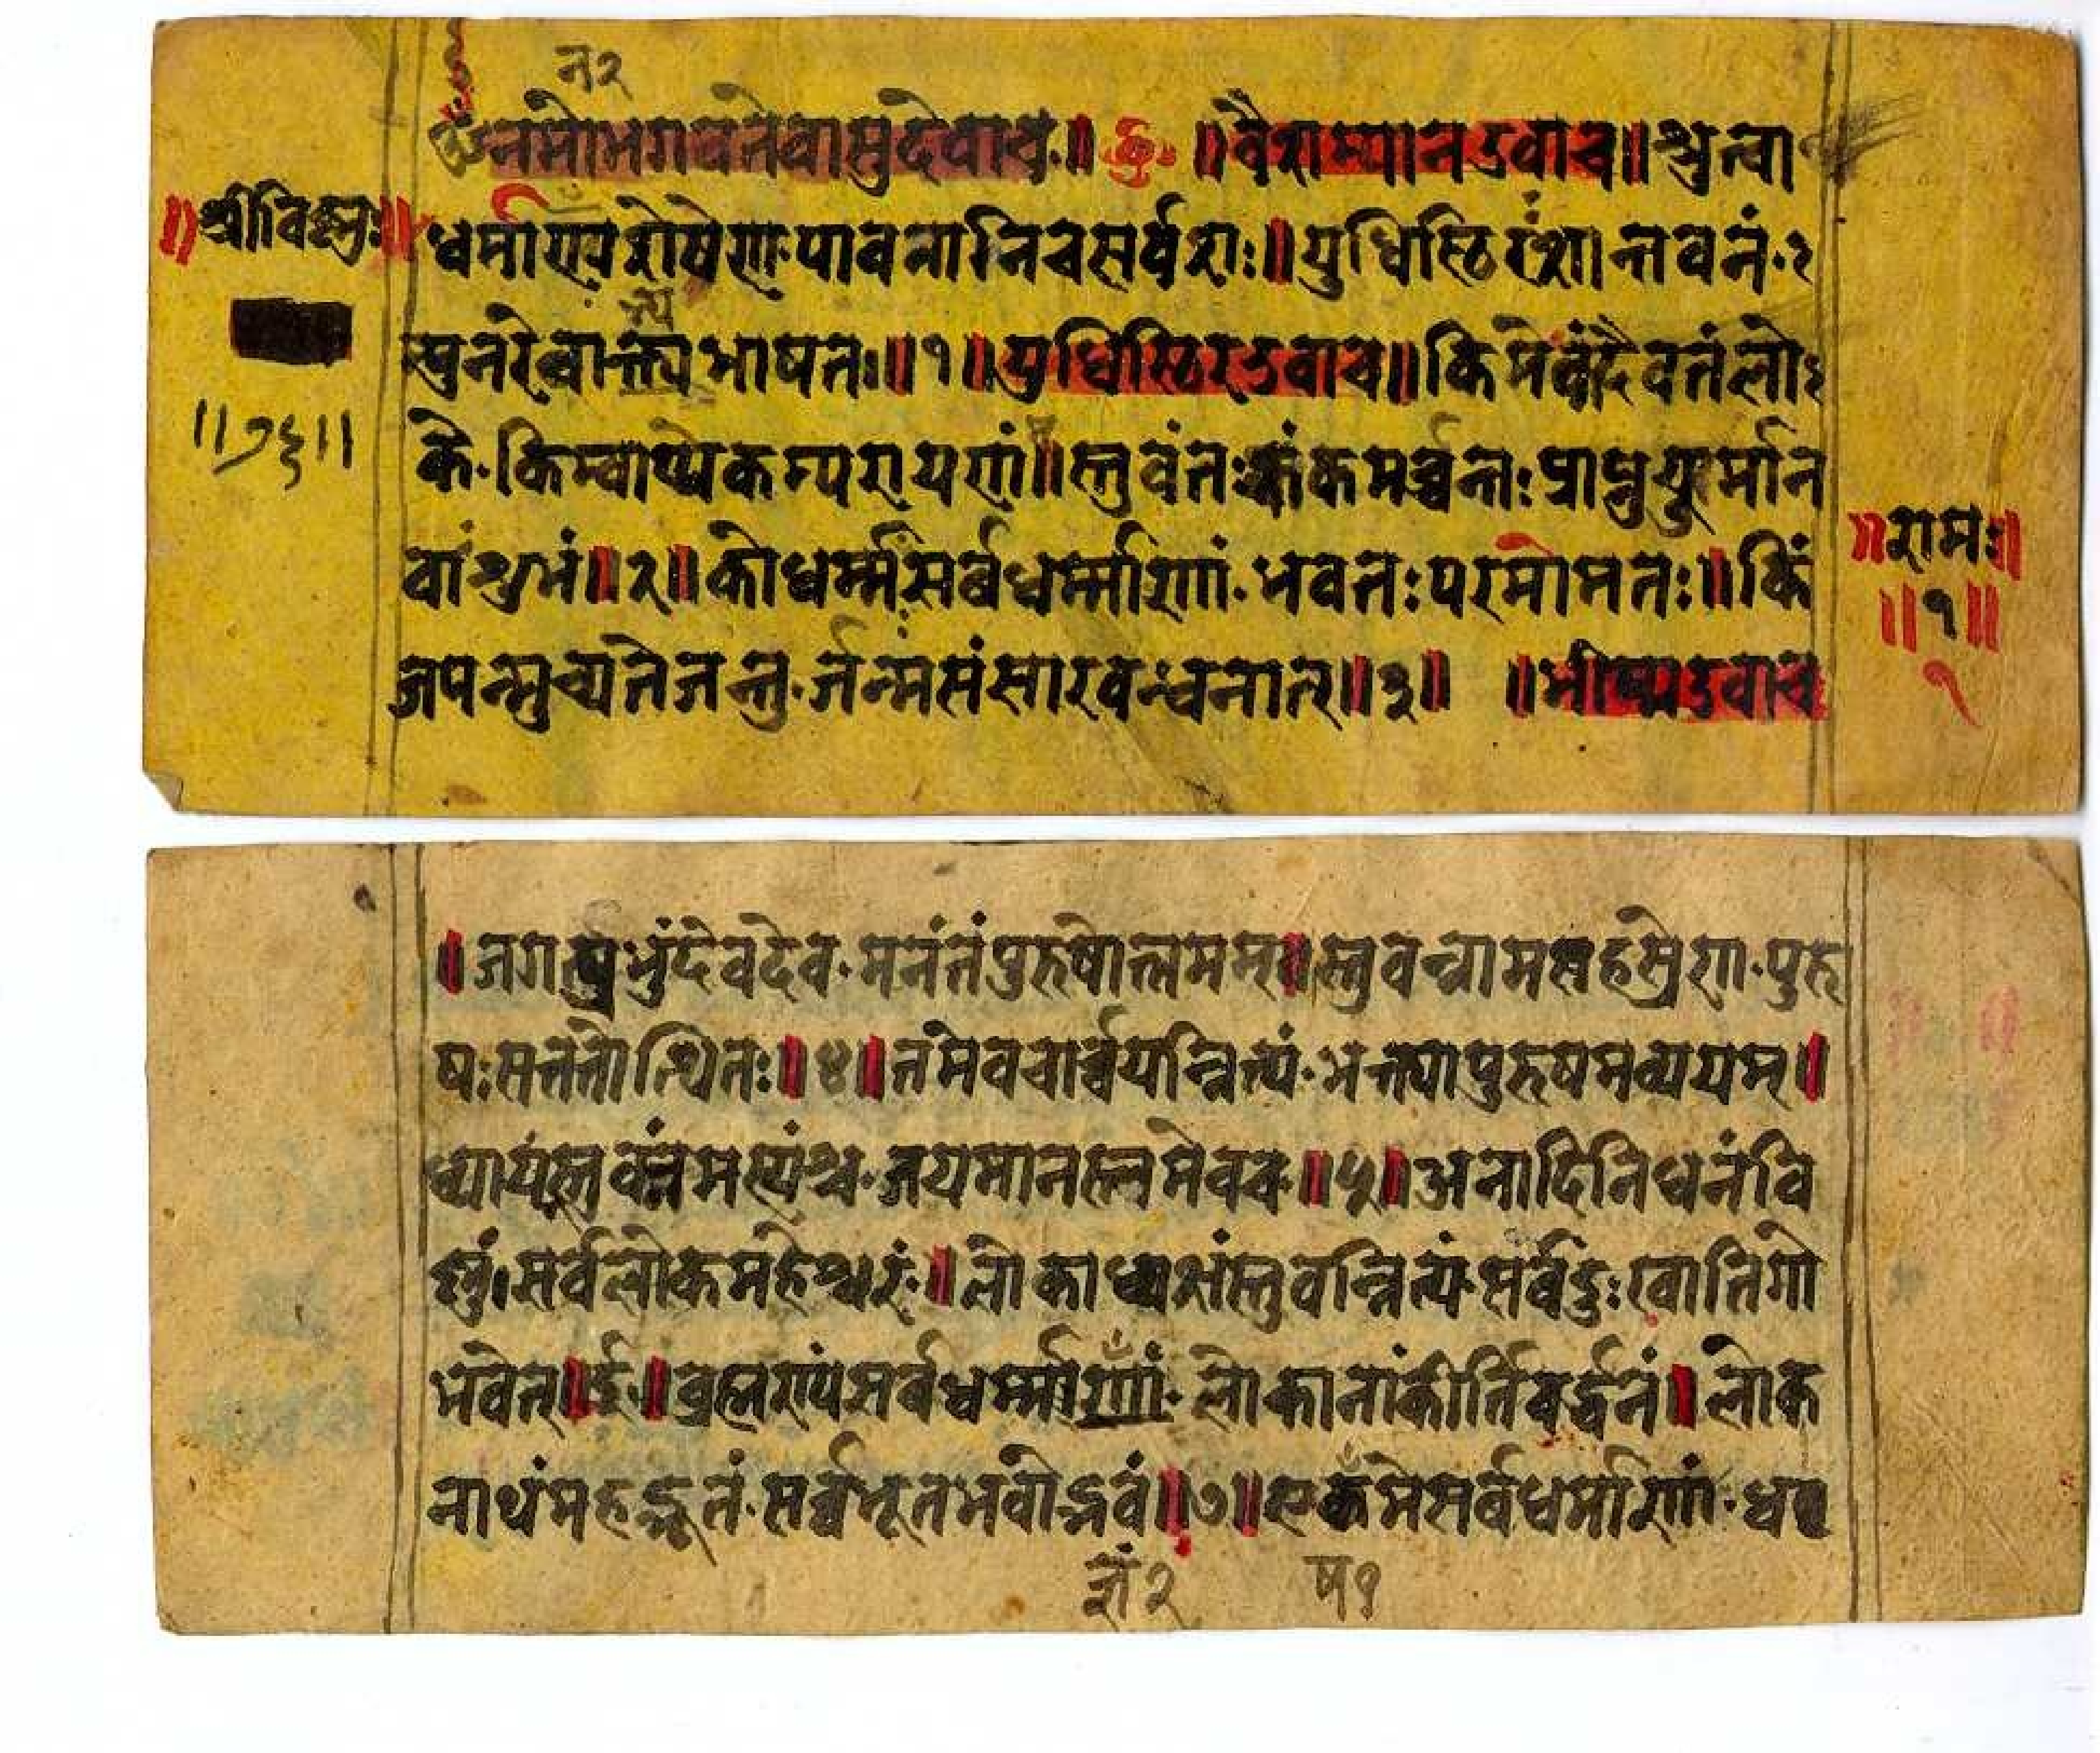 न२
ॐनमोभगवतेवासुदेवाय॥ ॥वैशम्पायनउवाच॥श्रुत्वा
॥श्रीविष्णुः॥
धर्माण्यशेषेण·पावनानिचसर्वशः॥युधिस्ठिरःशान्तवनं·२
त्पुनरेवाभ्यभाषत॥१॥युधिस्ठिरउवाच॥किमेकंदैवतंलो
॥७६॥
के·किम्वाप्येकम्परायणं॥स्तुवंतःकंकमर्च्चन्तःप्राप्नुयुर्मान
॥रामः॥
वाःशुभं॥२॥कोधर्म्मःसर्वधर्म्माणां·भवतःपरमोमतः॥किं
॥१॥
जपन्मुच्यतेजन्तु·र्जन्मसंसारवन्धनात्॥३॥ ॥भीष्मउवाच
१
॥जगत्प्रभुंदेवदेव·मनंतंपुरुषोत्तमम्॥स्तुवन्नामसहस्रेण·पुरु
षःसततोत्थितः॥४॥तमेवचार्च्चयन्नित्यं·भक्त्यापुरुषमव्ययम्॥
ध्यायंस्तुवन्नंमस्यंश्च·जयमानस्तमेवच॥५॥अनादिनिधनंवि
ष्णुं।सर्वलोकमहेश्वरं·॥लोकाध्यक्षंस्तुवन्नित्यं·सर्वदुःखातिगो
भवेत्॥६॥ब्रह्मण्यंसर्वधर्म्माणां·लोकानांकीर्तिवर्द्धनं॥लोक
नाथंमहद्भूतं·सर्वभूतभवोद्भवं॥७॥एकमेसर्वधर्माणां·धर
ज्ञं२ ष१